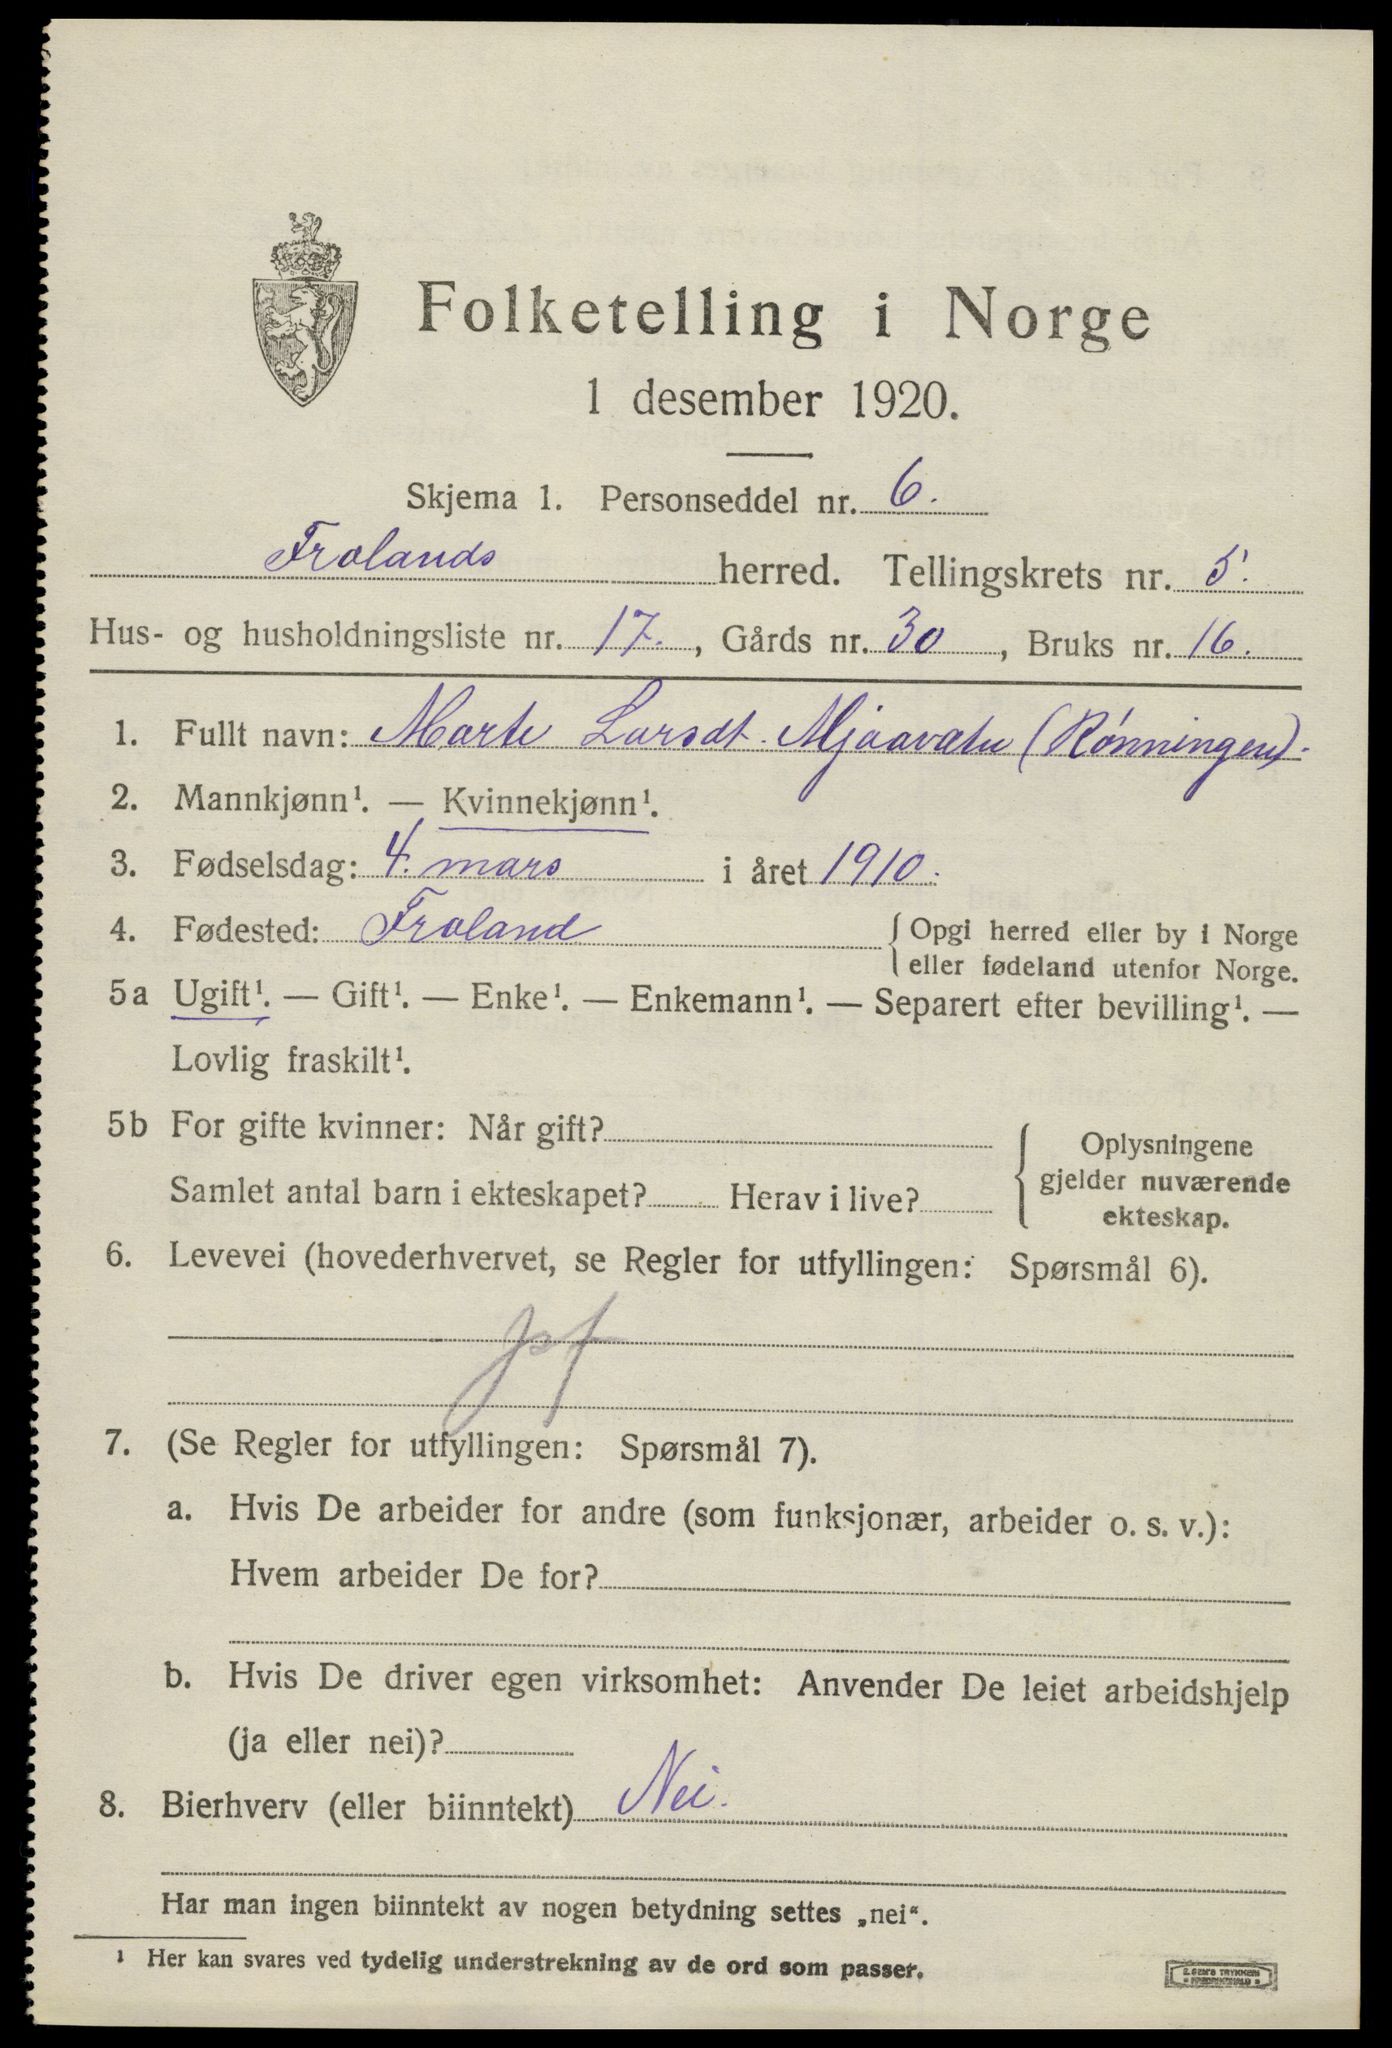 Folketelling i Norge
1 desember 1920.
Skjema 1. Personseddel nr. 6.
Frolands herred. Tellingskrets nr. 5.
Hus- og husholdningsliste nr. 17., Gårds nr. 30, Bruks nr. 16.
1. Fullt navn: Marte Larsdt. Mjaavatn (Rønningen).
2. Mannkjønn¹. — Kvinnekjønn¹.
3. Fødselsdag: 4. mars i året 1910.
4. Fødested: Froland { Opgi herred eller by i Norge
eller fødeland utenfor Norge.
5a Ugift¹. — Gift¹. — Enke¹. — Enkemann¹. — Separert efter bevilling¹. —
Lovlig fraskilt¹.
5b For gifte kvinner: Når gift?
Samlet antal barn i ekteskapet? Herav i live?
Oplysningene
gjelder nuværende
ekteskap.
6. Levevei (hovederhvervet, se Regler for utfyllingen: Spørsmål 6).
7. (Se Regler for utfyllingen: Spørsmål 7).
a. Hvis De arbeider for andre (som funksjonær, arbeider o. s. v.):
Hvem arbeider De for?
b. Hvis De driver egen virksomhet: Anvender De leiet arbeidshjelp
(ja eller nei)?
8. Bierhverv (eller biinntekt) Nei.
Har man ingen biinntekt av nogen betydning settes „nei“.
¹ Her kan svares ved tydelig understrekning av de ord som passer.